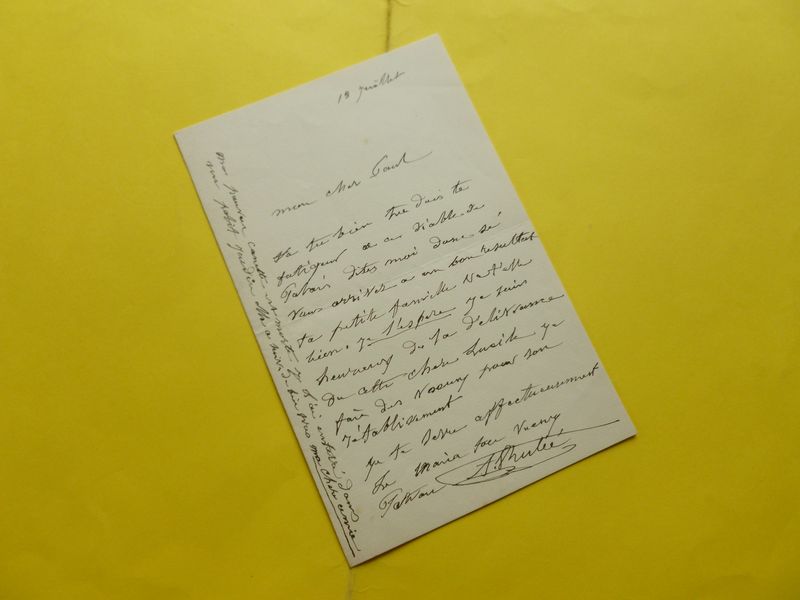 18 juillet
mon cher Paul
Va tu bien tu dois te
fatiguer a ce diable de
Palais dites moi donc si
vous arrivez a un bon resultat
ta petite famille va t'elle
bien je l'espere je suis
heureux de la delivrance
de cette chere Lucile je
fais des voeux pour son
rétablissement
je te serre affectueusement
Le
ma pauvre est morte je l'ai enterré dans
mon petit jardin elle a ma chere amie